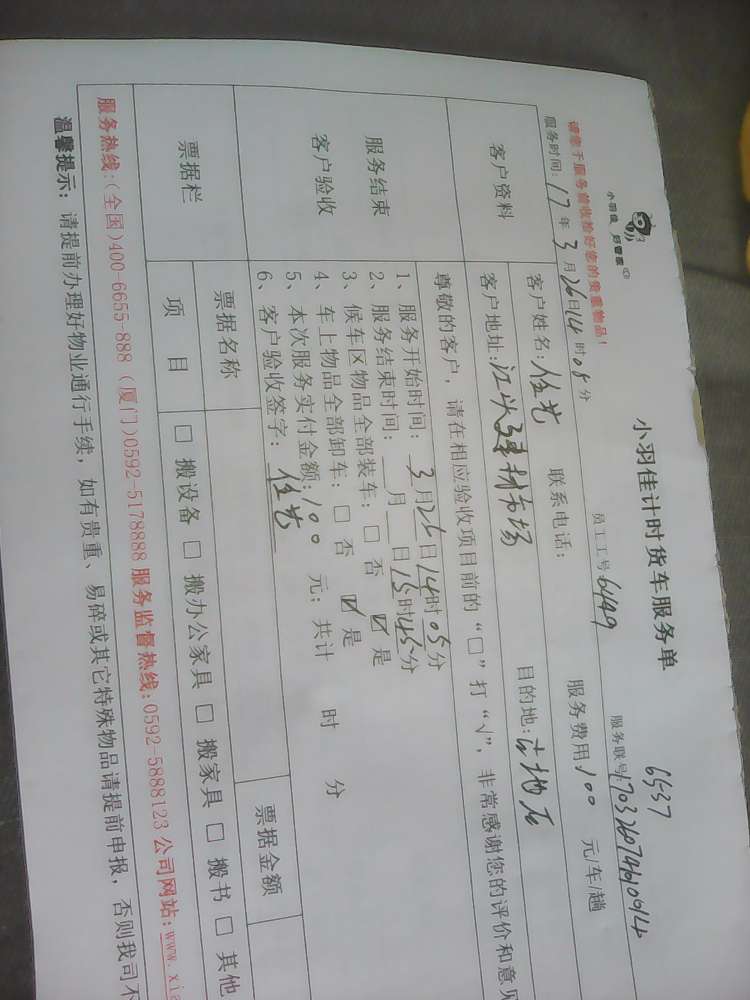 小羽佳 好管家
小羽佳计时货车服务单
6537
请您于服务前收检好您的贵重物品!
员工工号6499
服务联号:
服务时间: 17年3月26日14时05分
服务费用100 元/车/趟
客户资料
客户姓名: 任艺 联系电话:
目的地: 古地石
客户地址:
建材市场
尊敬的客户, 请在相应验收项目前的“□”打“√”, 非常感谢您的评价和意见
服务结束
客户验收
1、服务开始时间: 3月26日14时05分
2、服务结束时间: 月 日15时45分
3、候车区物品全部装车: □ 否 ☑ 是
4、车上物品全部卸车: □ 否 ☑ 是
5、本次服务实付金额: 100 元; 共计 时 分
6、客户验收签字: 任艺
票据栏
票据名称
票据金额
项 目
□ 搬设备 □ 搬办公家具 □ 搬家具 □ 搬书 □ 其他
服务热线:(全国)400-6655-888 (厦门)0592-5178888 服务监督热线:0592-5888123 公司网站:www.xia
温馨提示: 请提前办理好物业通行手续, 如有贵重、易碎或其它特殊物品请提前申报, 否则我司不